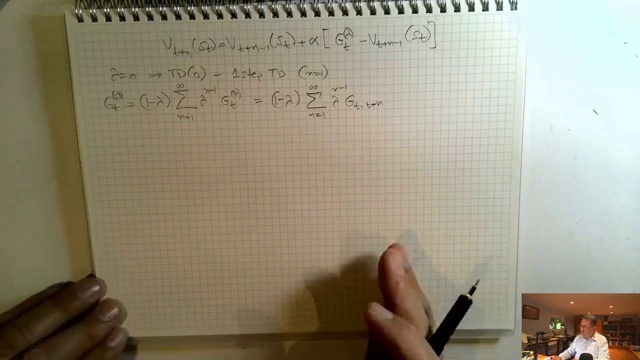 V_{t+n}(S_t) = V_{t+n-1}(S_t) + α [ G_t^{(λ)} - V_{t+n-1}(S_t) ]
λ=0 ⇒ TD(0) - 1 step TD (n=1)
G_t^{(λ)} = (1-λ) ∑_{n=1}^{∞} λ^{n-1} G_t^{(n)} = (1-λ) ∑_{n=1}^{∞} λ^{n-1} G_{t:t+n}